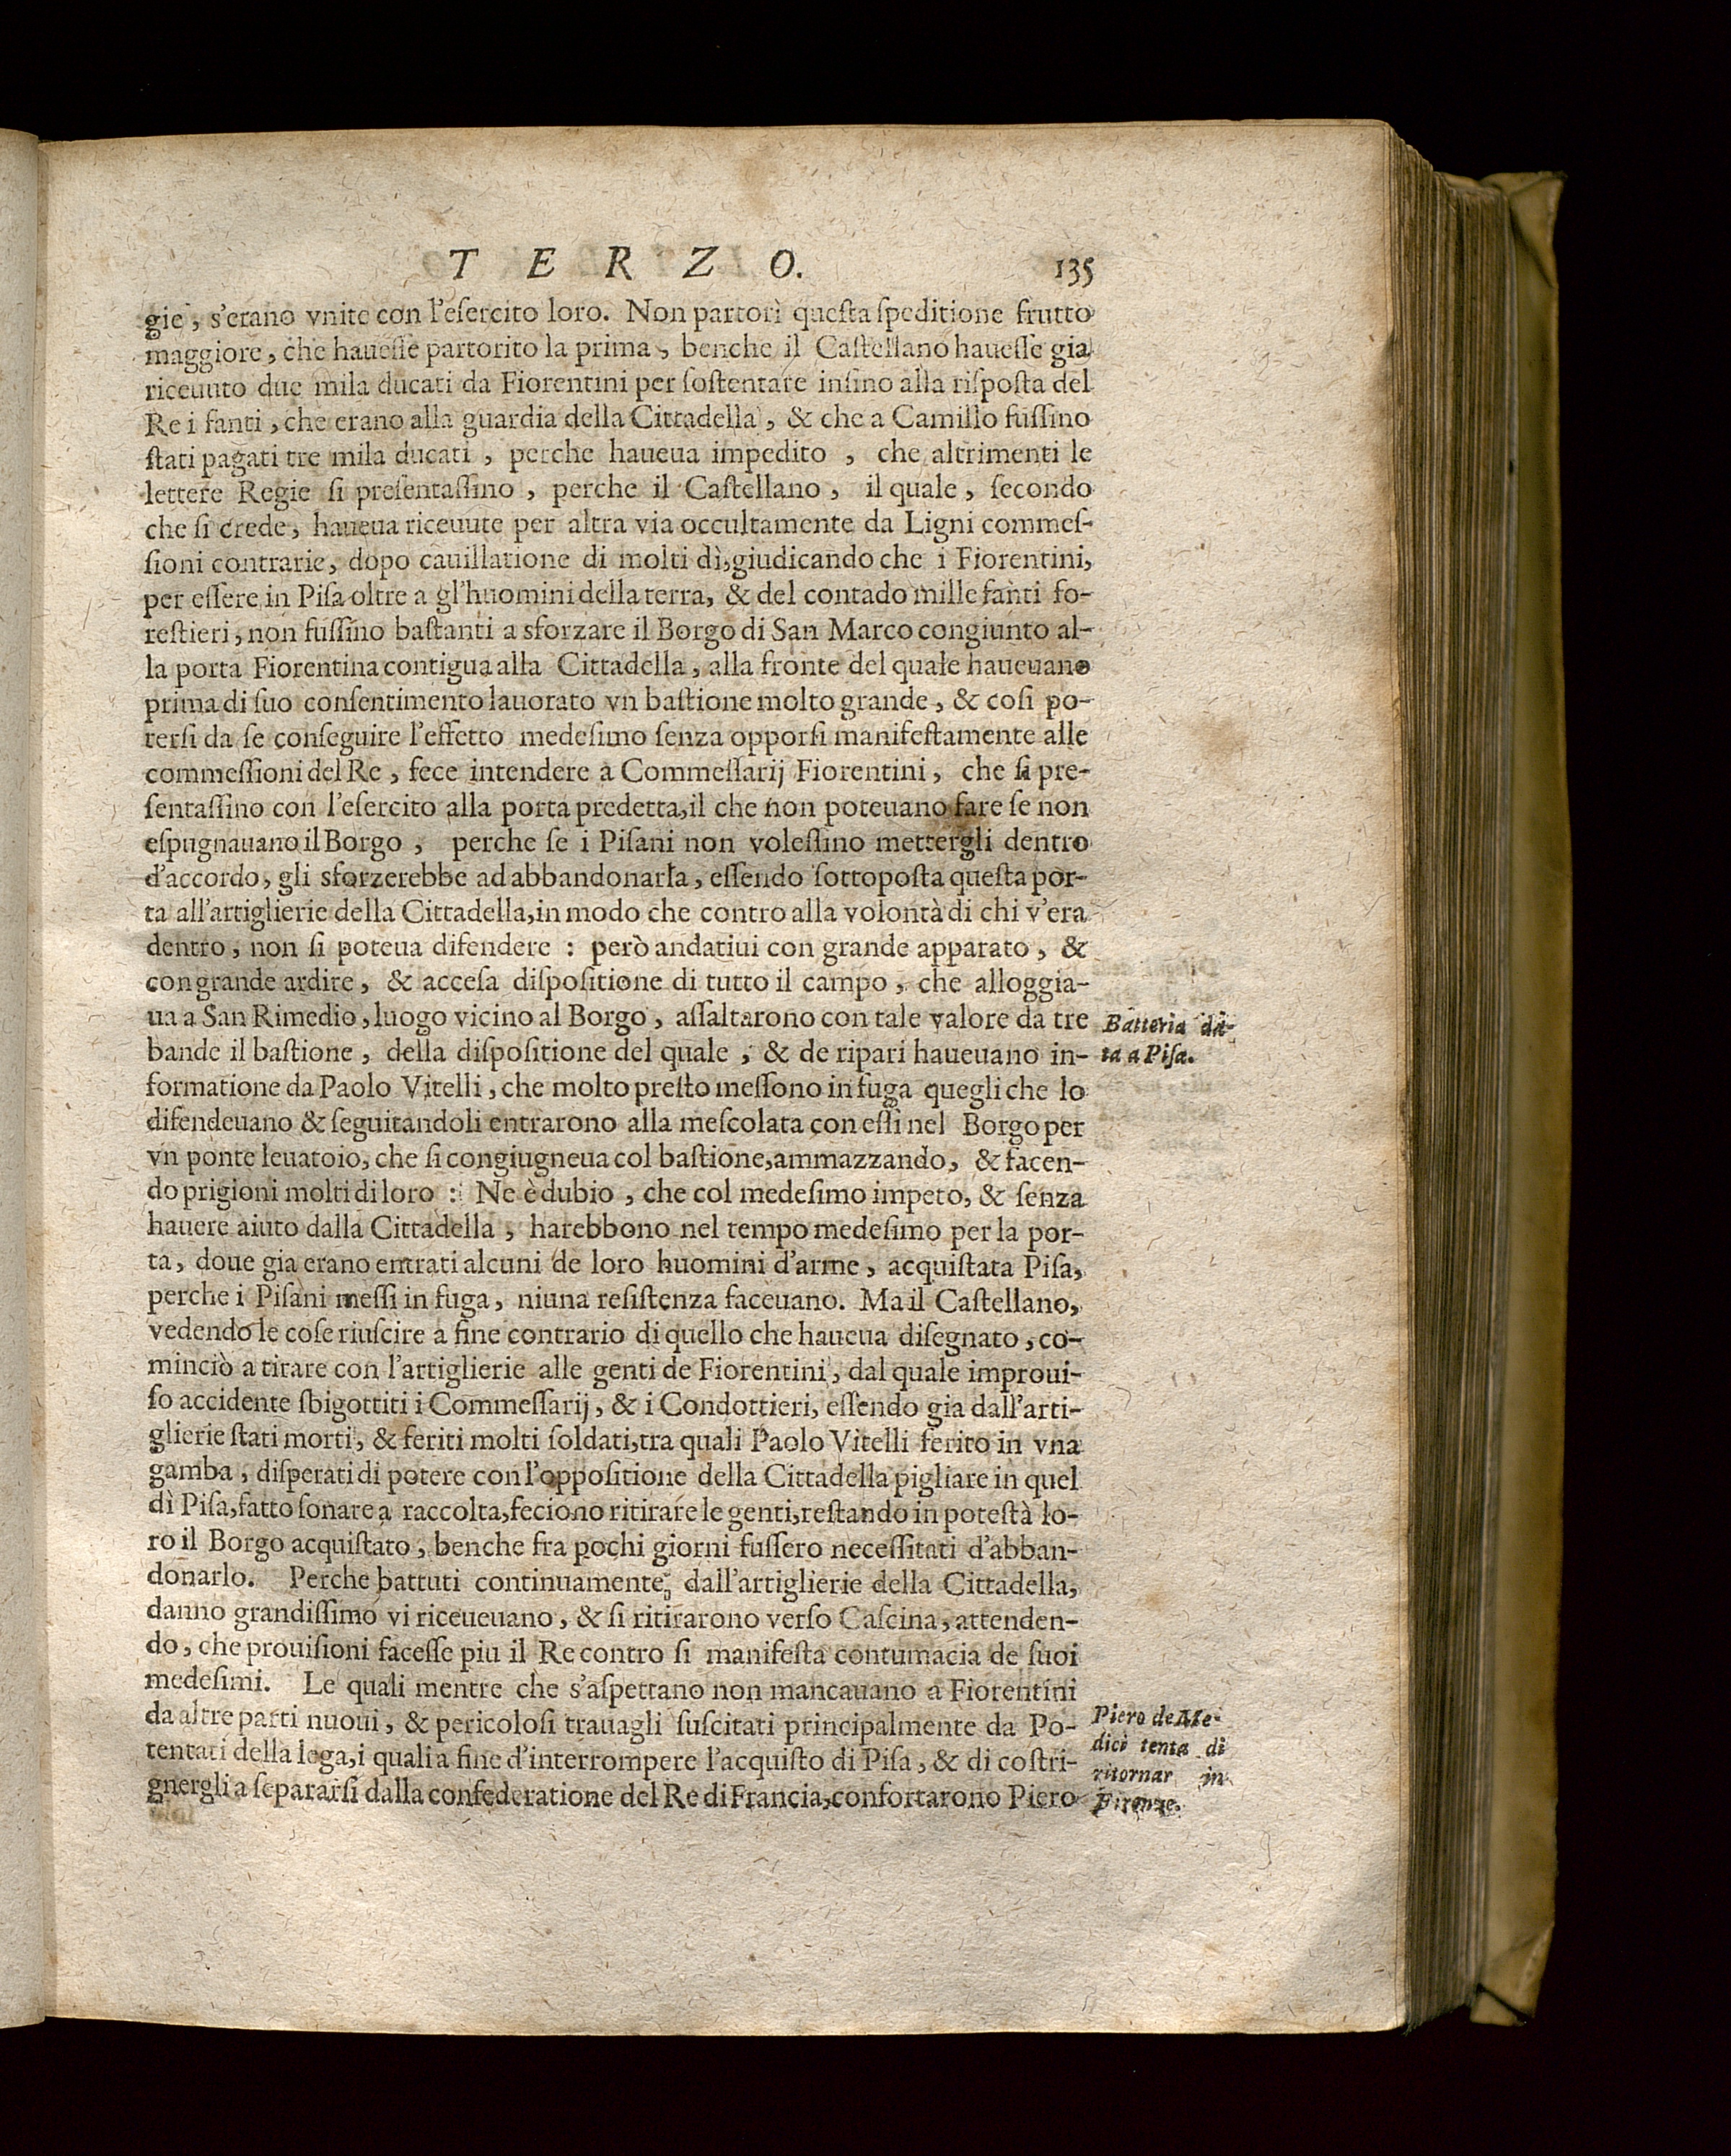 TERZO. 135
gie, s'erano vnite con l'eſercito loro. Non partorì queſta ſpeditione frutto
maggiore, che haueſſe partorito la prima, benche il Caſtellano haueſſe gia
riceuuto due mila ducati da Fiorentini per ſoſtentare inſino alla riſpoſta del
Re i fanti, che erano alla guardia della Cittadella, & che a Camillo fuſſino
ſtati pagati tre mila ducati, perche haueua impedito, che altrimenti le
lettere Regie ſi preſentaſſino, perche il Caſtellano, il quale, ſecondo
che ſi crede, haueua riceuute per altra via occultamente da Ligni commeſ-
ſioni contrarie, dopo cauillatione di molti dì, giudicando che i Fiorentini,
per eſſere in Piſa oltre a gl'huomini della terra, & del contado mille fanti fo-
reſtieri, non fuſſino baſtanti a sforzare il Borgo di San Marco congiunto al-
la porta Fiorentina contigua alla Cittadella, alla fronte del quale haueuano
prima di ſuo conſentimento lauorato vn baſtione molto grande, & coſi po-
terſi da ſe conſeguire l'effetto medeſimo ſenza opporſi manifeſtamente alle
commeſſioni del Re, fece intendere a Commeſſarij Fiorentini, che ſi pre-
ſentaſſino con l'eſercito alla porta predetta, il che non poteuano fare ſe non
eſpugnauano il Borgo, perche ſe i Piſani non voleſſino mettergli dentro
d'accordo, gli sforzerebbe ad abbandonarla, eſſendo ſottopoſta queſta por-
ta all'artiglierie della Cittadella, in modo che contro alla volontà di chi v'era
dentro, non ſi poteua difendere : però andatiui con grande apparato, &
con grande ardire, & acceſa diſpoſitione di tutto il campo, che alloggia-
ua a San Rimedio, luogo vicino al Borgo, aſſaltarono con tale valore da tre
bande il baſtione, della diſpoſitione del quale, & de ripari haueuano in-
formatione da Paolo Vitelli, che molto preſto meſſono in fuga quegli che lo
difendeuano & ſeguitandoli entrarono alla meſcolata con eſſi nel Borgo per
vn ponte leuatoio, che ſi congiugneua col baſtione, ammazzando, & facen-
do prigioni molti di loro : Ne è dubio, che col medeſimo impeto, & ſenza
hauere aiuto dalla Cittadella, harebbono nel tempo medeſimo per la por-
ta, doue gia erano entrati alcuni de loro huomini d'arme, acquiſtata Piſa,
perche i Piſani meſſi in fuga, niuna reſiſtenza faceuano. Ma il Caſtellano,
vedendo le coſe riuſcire a fine contrario di quello che haueua diſegnato, co-
minciò a tirare con l'artiglierie alle genti de Fiorentini, dal quale improui-
ſo accidente ſbigottiti i Commeſſarij, & i Condottieri, eſſendo gia dall'arti-
glierie ſtati morti, & feriti molti ſoldati, tra quali Paolo Vitelli ferito in vna
gamba, diſperati di potere con l'oppoſitione della Cittadella pigliare in quel
dì Piſa, fatto ſonare a raccolta, feciono ritirare le genti, reſtando in poteſtà lo-
ro il Borgo acquiſtato, benche fra pochi giorni fuſſero neceſſitati d'abban-
donarlo. Perche battuti continuamente dall'artiglierie della Cittadella,
danno grandiſſimo vi riceueuano, & ſi ritirarono verſo Caſcina, attenden-
do, che prouiſioni faceſſe piu il Re contro ſi manifeſta contumacia de ſuoi
medeſimi. Le quali mentre che s'aſpettano non mancauano a Fiorentini
da altre parti nuoui, & pericoloſi trauagli ſuſcitati principalmente da Po-
tentati della lega, i quali a fine d'interrompere l'acquiſto di Piſa, & di coſtri-
gnergli a ſepararſi dalla confederatione del Re di Francia, confortarono Piero
Batteria da-
ta a Piſa.
Piero de Me-
dici tenta di
ritornar in
Firenze.